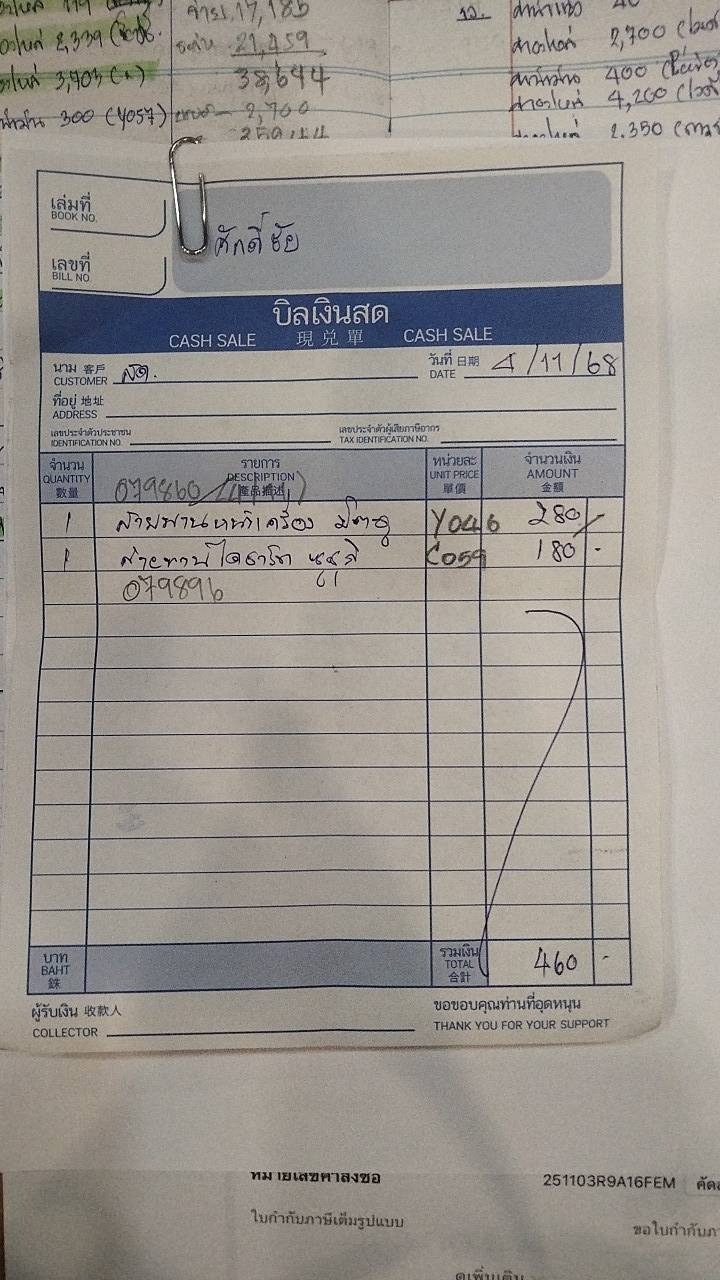 2,339
จ่าย 17,185
21,459
38,644
2,700
12.
2,700
400
4,200
2,350
3,703
300 (Y057)
เล่มที่
BOOK NO.
เลขที่
BILL NO.
ศักดิ์ชัย
บิลเงินสด
CASH SALE 現兌單 CASH SALE
นาม 客戶
CUSTOMER สด.
วันที่ 日期
DATE 4/11/68
ที่อยู่ 地址
ADDRESS
เลขประจำตัวประชาชน
IDENTIFICATION NO.
เลขประจำตัวผู้เสียภาษีอากร
TAX IDENTIFICATION NO.
จำนวน รายการ หน่วยละ จำนวนเงิน
QUANTITY DESCRIPTION UNIT PRICE AMOUNT
數量 產品描述 單價 金額
079860
1 สายพานหน้าเครื่อง มิตซู Y046 280 -
1 สายพานไดชาร์ท Co59 180 -
079896
บาท
BAHT
銖
รวมเงิน
TOTAL
合計
460 -
ผู้รับเงิน 收款人
COLLECTOR
ขอขอบคุณท่านที่อุดหนุน
THANK YOU FOR YOUR SUPPORT
หมายเลขคำสั่งซื้อ 251103R9A16FEM
ใบกำกับภาษีเต็มรูปแบบ
ดูเพิ่มเติม